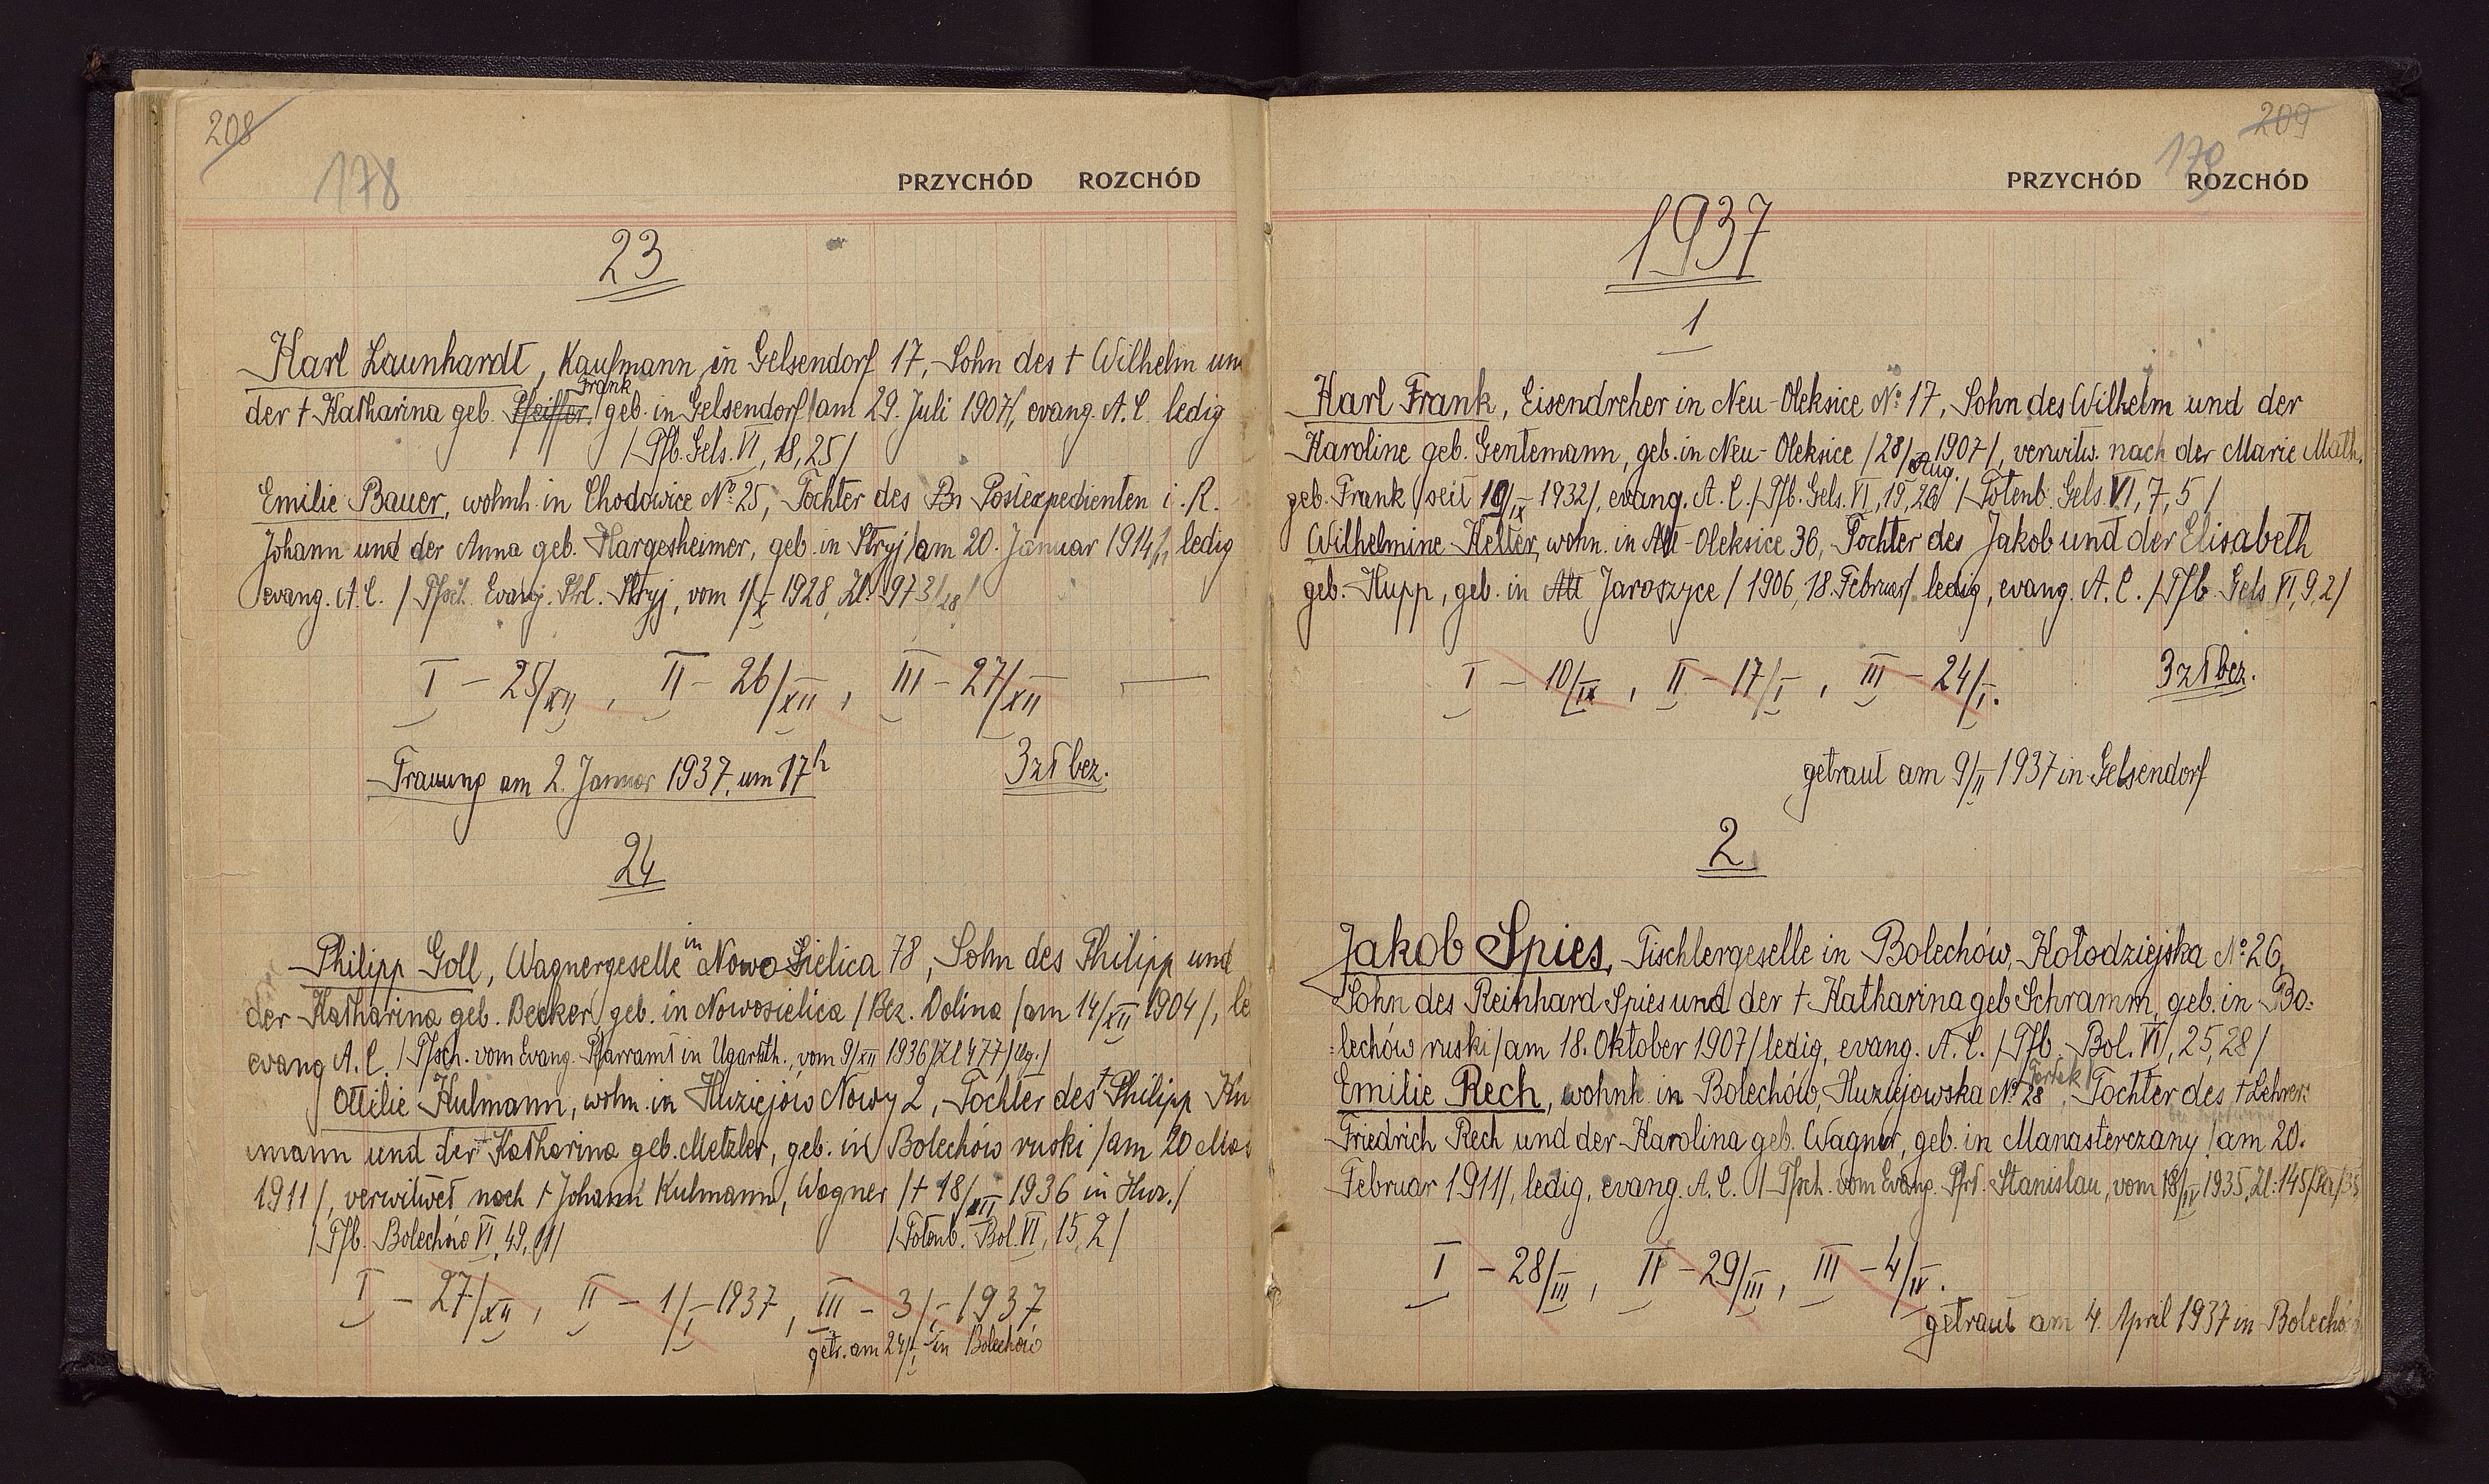 208
178
PRZYCHÓD ROZCHÓD
23
Karl Launhardt, Kaufmann in Gelsendorf 17, Sohn des † Wilhelm und
Frank
der † Katharina geb. Pfeiffer / geb. in Gelsendorf / am 29. Juli 1907/, evang. A. C. ledig
/ Pfb. Gels. VI, 18, 25 /
Emilie Bauer, wohnh. in Chodowice No. 25, Tochter des Br Postexpedienten i. R.
Johann und der Anna geb. Hargesheimer, geb. in Stryj / am 20. Januar 1914/, ledig
evang. A. C. / Pfsch. Evang. Pfrl. Stryj, vom 1/X 1928, Zl. 973/28 /
I – 25/XII, II – 26/XII, III – 27/XII
Trauung am 2. Januar 1937, um 17h 3 zł bez.
24
Philipp Goll, Wagnergeselle in Nowo Sielica 78, Sohn des Philipp und
der Katharina geb. Becker, geb. in Nowosielica / Bez. Dolina / am 14/XII 1904 /, le
evang A. C. / Pfsch. vom Evang. Pfarramt in Ugartsth., vom 9/XII 1936 / Zl 477 / Ug. /
Ottilie Kulmann, wohn. in Huziejów Nowy 2, Tochter des † Philipp Ku
mann und der Katharina geb. Metzler, geb. in Bolechów ruski / am 20 Mai
1911 /, verwitwet nach † Johann Kulmann, Wagner / † 18/III 1936 in Huz. /
/ Pfb. Bolechów VI, 49, 11 / / Totenb. Bol. VI, 15, 2 /
I – 27/XII, II – 1/I – 1937, III – 3/I – 1937
getr. am 24/I in Bolechów
209
179
PRZYCHÓD ROZCHÓD
1937
1
Karl Frank, Eisendreher in Neu-Oleksice No. 17, Sohn des Wilhelm und der
Karoline geb. Gentemann, geb. in Neu-Oleksice / 28/Aug. 1907 /, verwitw. nach der Marie Math.
geb. Frank / seit 19/IX 1932 /, evang. A. C. / Pfb. Gels. VI, 19, 26 / / Totenb. Gels. VI, 7, 5 /
Wilhelmine Keller, wohn. in Alt-Oleksice 36, Tochter des Jakob und der Elisabeth
geb. Hupp, geb. in Alt Jaroszyce / 1906, 18. Februar / ledig, evang. A. C. / Pfb. Gels VI, 9, 2 /
I – 10/IX, II – 17/I, III – 24/I. 3 zł bez.
getraut am 9/II 1937 in Gelsendorf
2
Jakob Spies, Tischlergeselle in Bolechów, Kołodziejska No. 26,
Sohn des Reinhard Spies und der † Katharina geb Schramm, geb. in Bo:
:lechów ruski / am 18. Oktober 1907 / ledig, evang. A. C. / Pfb. Bol. VI, 25, 28 /
Emilie Rech, wohnh. in Bolechów, Huziejowska No. 28, Tochter des † Lehrers
Friedrich Rech und der Karolina geb. Wagner, geb. in Manasterczany / am 20.
Februar 1911 /, ledig, evang. A. C. / Pfsch. vom Evang. Pfrl. Stanislau, vom 18/IV 1935, Zl: 145/Pa/35
I – 28/III, II – 29/III, III – 4/IV.
getraut am 4. April 1937 in Bolechów